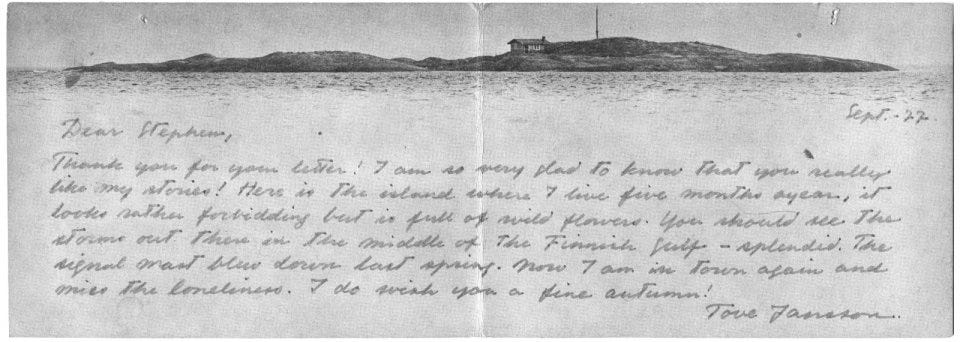 Sept. -77.
Dear Stephen,
Thank you for your letter! I am so very glad to know that you really
like my stories! Here is the island where I live five months ayear, it
looks rather forbidding but is full of wild flowers. You should see the
storms out there in the middle of the Finnish gulf – splendid. The
signal mast blew down last spring. Now I am in town again and
miss the loneliness. I do wish you a fine autumn!
Tove Jansson.